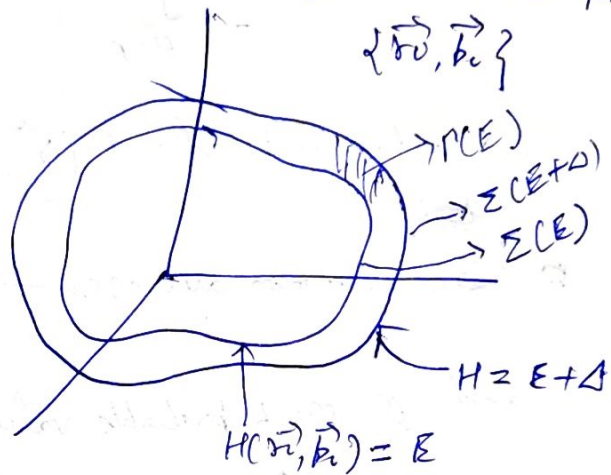 {r⃗i, p⃗i}
Γ(E)
Σ(E+Δ)
Σ(E)
H = E+Δ
H(r⃗i, p⃗i) = E